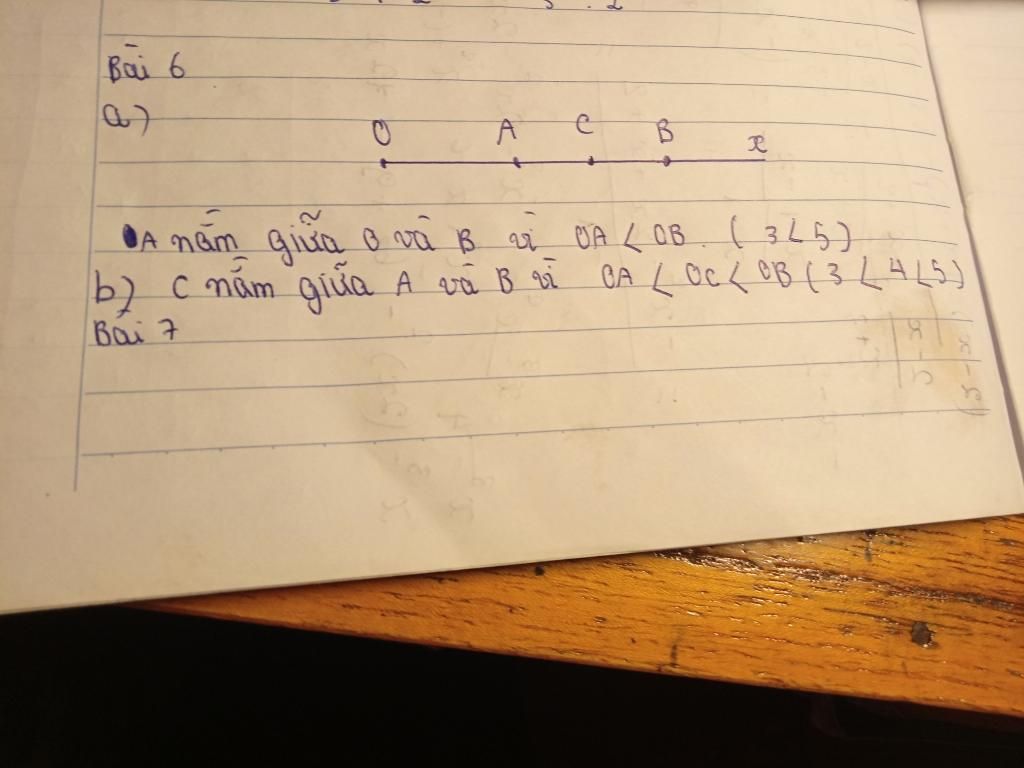 Bài 6
a)
O A C B x
A nằm giữa O và B vì OA < OB. (3 < 5)
b) C nằm giữa A và B vì OA < OC < OB (3 < 4 < 5)
Bài 7